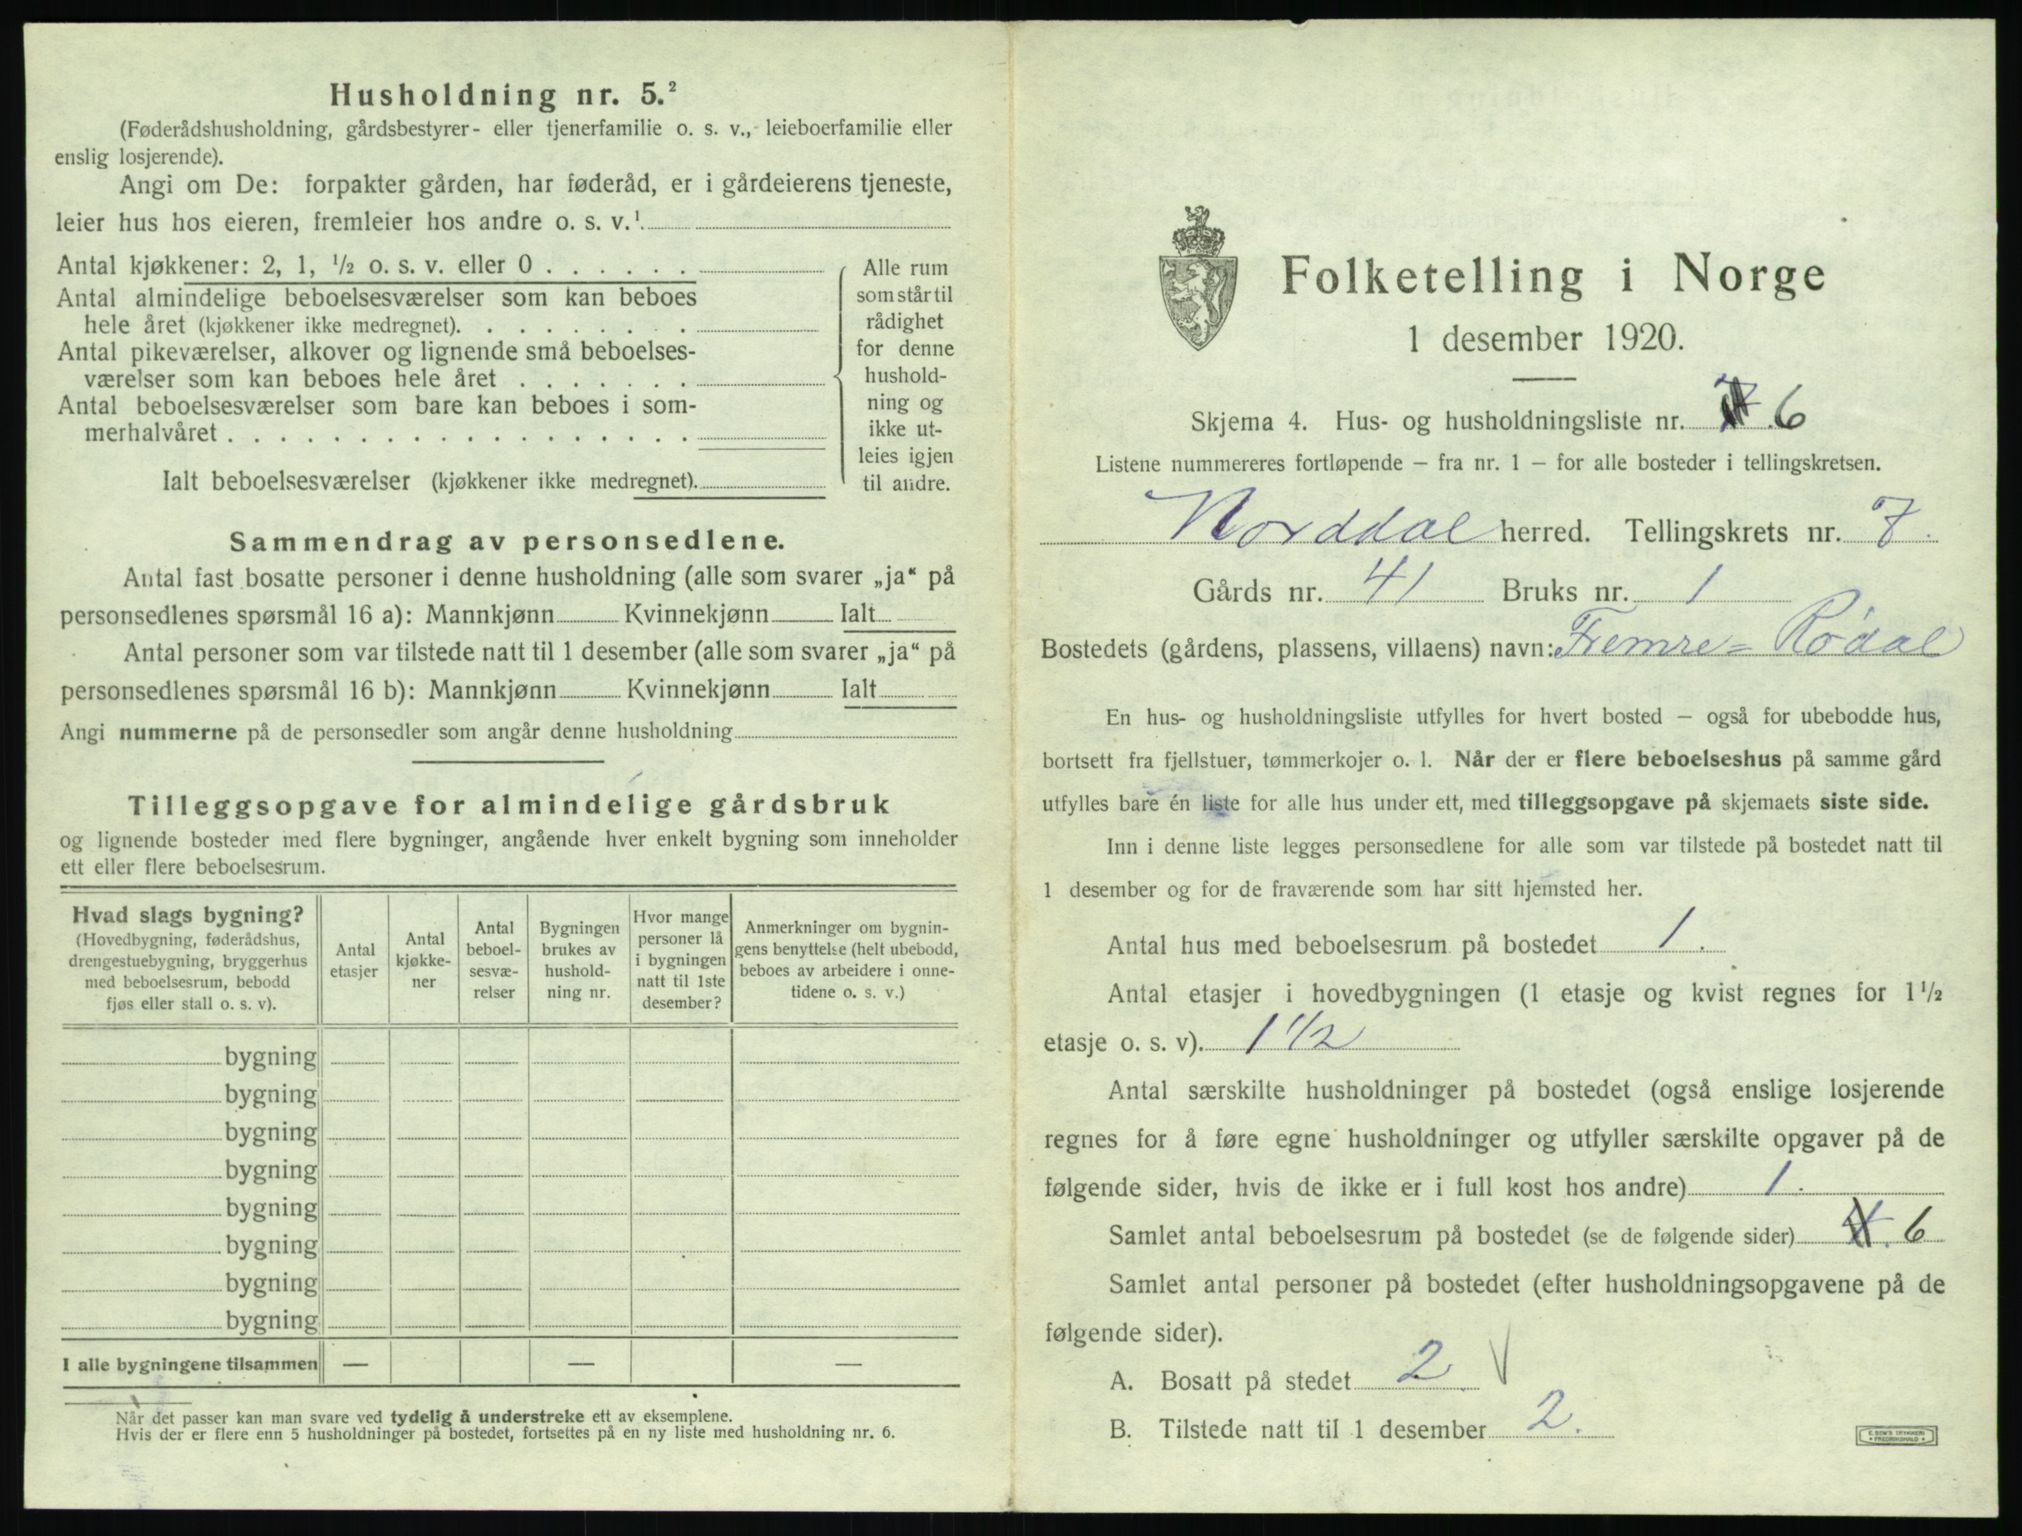 Husholdning nr. 5.²
(Føderådshusholdning, gårdsbestyrer- eller tjenerfamilie o. s. v., leieboerfamilie eller
enslig losjerende).
Angi om De: forpakter gården, har føderåd, er i gårdeierens tjeneste,
leier hus hos eieren, fremleier hos andre o. s. v.¹
Antal kjøkkener: 2, 1, ½ o. s. v. eller 0 . . . . . .
Antal almindelige beboelsesværelser som kan beboes
hele året (kjøkkener ikke medregnet). . . . . . . . .
Antal pikeværelser, alkover og lignende små beboelses-
værelser som kan beboes hele året . . . . . . .
Antal beboelsesværelser som bare kan beboes i som-
merhalvåret . . . . . . . . . . . . . . . . . .
Ialt beboelsesværelser (kjøkkener ikke medregnet).
Alle rum
som står til
rådighet
for denne
hushold-
ning og
ikke ut-
leies igjen
til andre.
Sammendrag av personsedlene.
Antal fast bosatte personer i denne husholdning (alle som svarer „ja“ på
personsedlenes spørsmål 16 a): Mannkjønn Kvinnekjønn Ialt
Antal personer som var tilstede natt til 1 desember (alle som svarer „ja“ på
personsedlenes spørsmål 16 b): Mannkjønn Kvinnekjønn Ialt
Angi nummerne på de personsedler som angår denne husholdning
Tilleggsopgave for almindelige gårdsbruk
og lignende bosteder med flere bygninger, angående hver enkelt bygning som inneholder
ett eller flere beboelsesrum.
Hvad slags bygning?
(Hovedbygning, føderådshus,
drengestuebygning, bryggerhus
med beboelsesrum, bebodd
fjøs eller stall o. s. v).
Antal
etasjer
Antal
kjøkke-
ner
Antal
beboel-
sesvæ-
relser
Bygningen
brukes av
hushold-
ning nr.
Hvor mange
personer lå
i bygningen
natt til 1ste
desember?
Anmerkninger om bygnin-
gens benyttelse (helt ubebodd,
beboes av arbeidere i onne-
tidene o. s. v.)
bygning
bygning
bygning
bygning
bygning
bygning
bygning
bygning
I alle bygningene tilsammen — — —
Når det passer kan man svare ved tydelig å understreke ett av eksemplene.
Hvis der er flere enn 5 husholdninger på bostedet, fortsettes på en ny liste med husholdning nr. 6.
Folketelling i Norge
1 desember 1920.
Skjema 4. Hus- og husholdningsliste nr. 6
Listene nummereres fortløpende – fra nr. 1 – for alle bosteder i tellingskretsen.
Norddal herred. Tellingskrets nr. 7.
Gårds nr. 41 Bruks nr. 1
Bostedets (gårdens, plassens, villaens) navn: Fremre= Rødal
En hus- og husholdningsliste utfylles for hvert bosted – også for ubebodde hus,
bortsett fra fjellstuer, tømmerkojer o. l. Når der er flere beboelseshus på samme gård
utfylles bare én liste for alle hus under ett, med tilleggsopgave på skjemaets siste side.
Inn i denne liste legges personsedlene for alle som var tilstede på bostedet natt til
1 desember og for de fraværende som har sitt hjemsted her.
Antal hus med beboelsesrum på bostedet 1.
Antal etasjer i hovedbygningen (1 etasje og kvist regnes for 1½
etasje o. s. v). 1 1/2
Antal særskilte husholdninger på bostedet (også enslige losjerende
regnes for å føre egne husholdninger og utfyller særskilte opgaver på de
følgende sider, hvis de ikke er i full kost hos andre) 1.
Samlet antal beboelsesrum på bostedet (se de følgende sider) 6
Samlet antal personer på bostedet (efter husholdningsopgavene på de
følgende sider).
A. Bosatt på stedet 2 V
B. Tilstede natt til 1 desember 2.